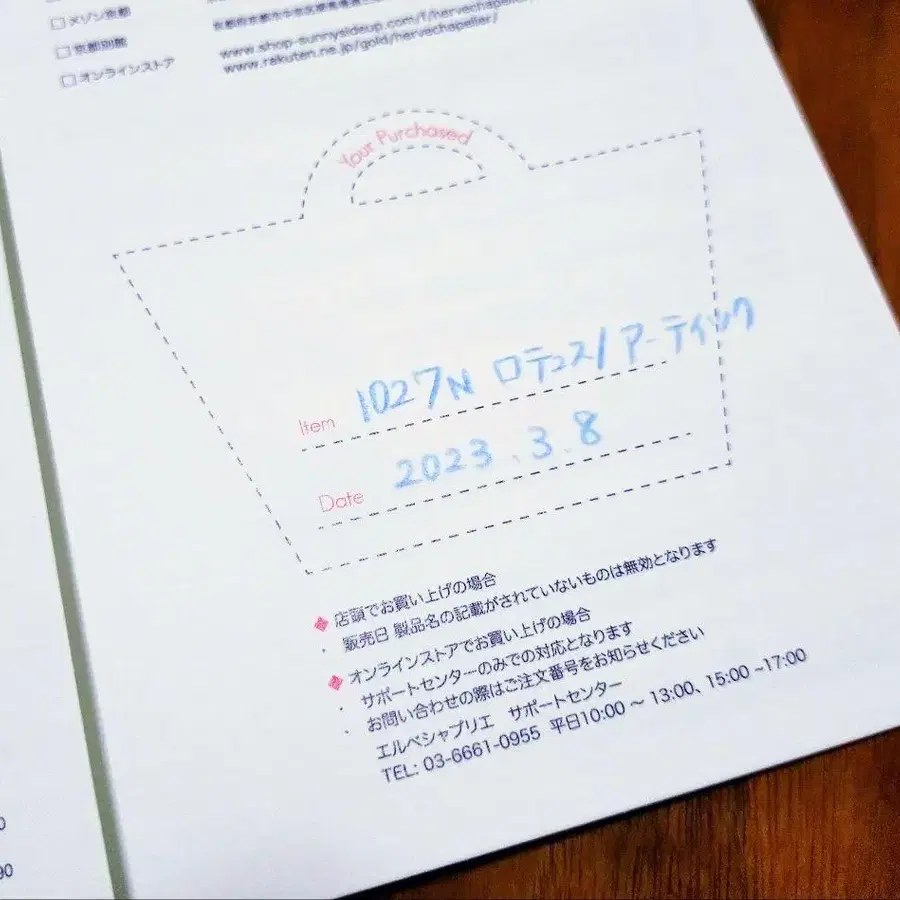 □ メゾン京都
□ 京都別館
www.shop-sunnysideup.com/f/hervechapelier/
□ オンラインストア
www.rakuten.ne.jp/gold/hervechapelier/
Your Purchased
Item 1027N ロテュス/アーティック
Date 2023.3.8
◆ 店頭でお買い上げの場合
・ 販売日 製品名の記載がされていないものは無効となります
◆ オンラインストアでお買い上げの場合
・ サポートセンターのみでの対応となります
・ お問い合わせの際はご注文番号をお知らせください
エルベシャプリエ サポートセンター
TEL: 03-6661-0955 平日10:00 ~ 13:00、15:00 ~17:00
0
90